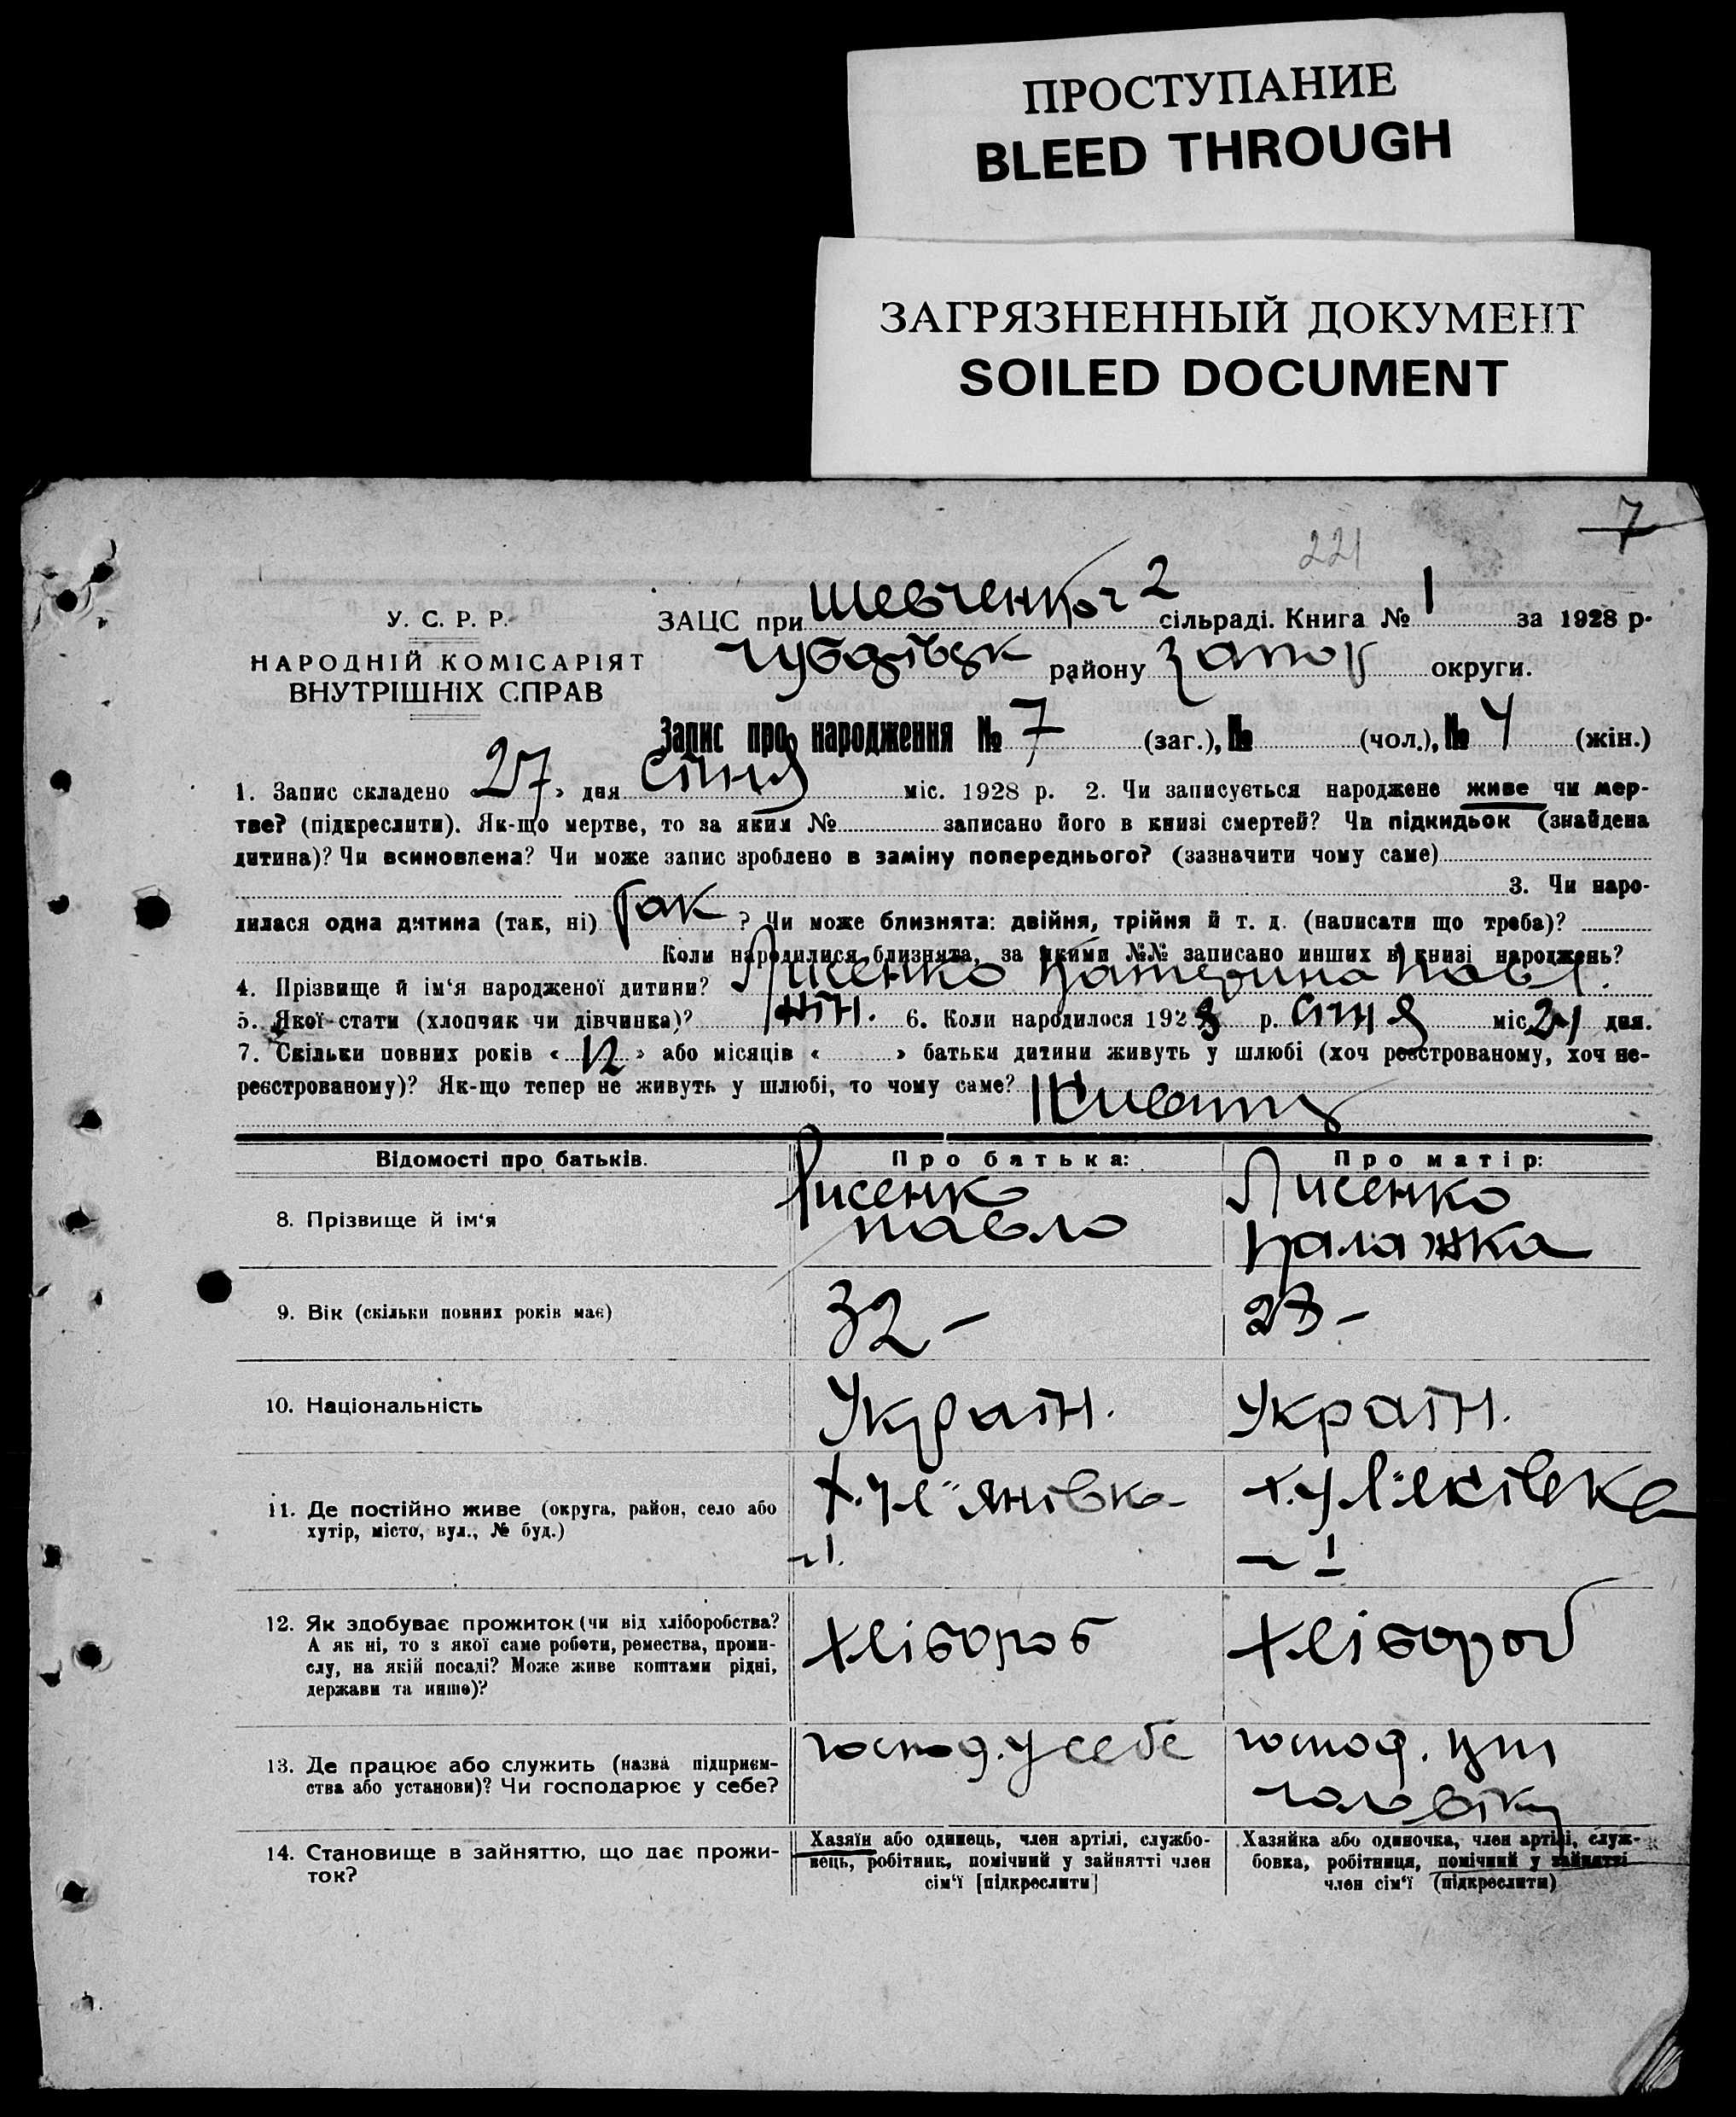 ПРОСТУПАНИЕ
BLEED THROUGH
ЗАГРЯЗНЕННЫЙ ДОКУМЕНТ
SOILED DOCUMENT
7
221
У. С. Р. Р.
НАРОДНІЙ КОМІСАРІЯТ
ВНУТРІШНІХ СПРАВ
ЗАЦС при Шевченк 2 сільраді. Книга № 1 за 1928 р.
району Запор округи.
Запис про народження № 7 (заг.), № (чол.), № 4 (жін.)
1. Запис складено « 27 » дня січня міс. 1928 р. 2. Чи записується народжене живе чи мер-
тве? (підкреслити). Як-що мертве, то за яким № записано його в книзі смертей? Чи підкидьок (знайдена
дитина)? Чи всиновлена? Чи може запис зроблено в заміну попереднього? (зазначити чому саме)
3. Чи наро-
дилася одна дитина (так, ні) Так ? Чи може близнята: двійня, трійня й т. д. (написати що треба)?
Коли народилися близнята, за якими №№ записано инших в книзі народжень?
4. Прізвище й ім‘я народженої дитини? Лисенко Катерина Павл.
5. Якої стати (хлопчик чи дівчинка)? жін. 6. Коли народилося 1928 р. січня міс. 24 дня.
7. Скільки повних років « 12 » або місяців « » батьки дитини живуть у шлюбі (хоч реєстрованому, хоч не-
реєстрованому)? Як-що тепер не живуть у шлюбі, то чому саме? Живуть
Відомості про батьків. Про батька: Про матір:
8. Прізвище й ім‘я Лисенко Павло Лисенко Палажка
9. Вік (скільки повних років має) 32 – 23 –
10. Національність Україн. Україн.
11. Де постійно живе (округа, район, село або
хутір, місто, вул., № буд.)
х. Ул"янівка
12. Як здобуває прожиток (чи від хліборобства?
А як ні, то з якої саме роботи, ремества, проми-
слу, на якій посаді? Може живе коштами рідні,
держави та инше)?
Хлібороб Хлібороб
13. Де працює або служить (назва підприєм-
ства або установи)? Чи господарює у себе?
господ. у себе господ. при
чоловіку
14. Становище в зайняттю, що дає прожи-
ток?
Хазяїн або одинець, член артілі, службо-
вець, робітник, помічний у зайнятті член
сім‘ї [підкреслити]
Хазяйка або одиночка, член артілі, служ-
бовка, робітниця, помічний у зайнятті
член сім‘ї (підкреслити)